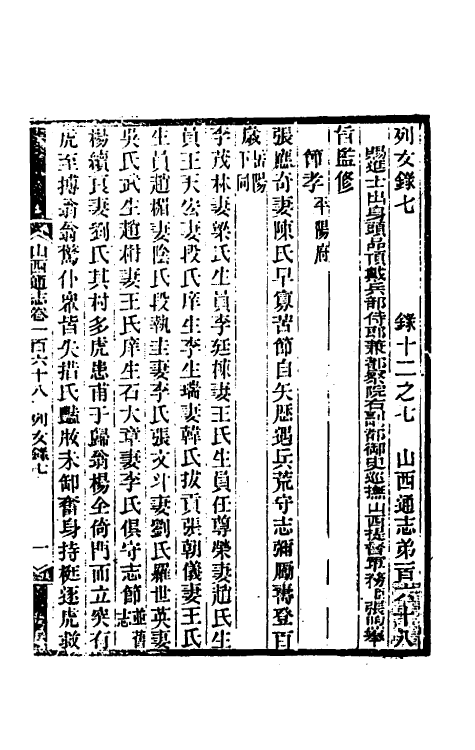 列女錄七　錄十二之七　山西通志第一百六十八
賜進士出身頭品頂戴兵部侍郎兼都察院右副都御史巡撫山西提督軍務張煦奉
旨監修
節孝平陽府
張應奇妻陳氏早寡苦節自矢歷遇兵荒守志彌勵壽登百
歲岳陽下同
李茂林妻梁氏生員李廷棟妻王氏生員任尊榮妻趙氏生
員王天公妻段氏庠生李生瑞妻韓氏拔貢張朝儀妻王氏
生員趙楣妻陰氏段執圭妻李氏張文斗妻劉氏羅世英妻
吳氏武生趙楷妻王氏庠生石大章妻李氏俱守志節並舊志
楊續良妻劉氏其村多虎患甫于歸翁楊全倚門而立突有
虎至搏翁翁驚仆眾皆失措氏豔妝未卸奮身持梃逐虎救
山西通志卷一百六十八　列女錄七　一